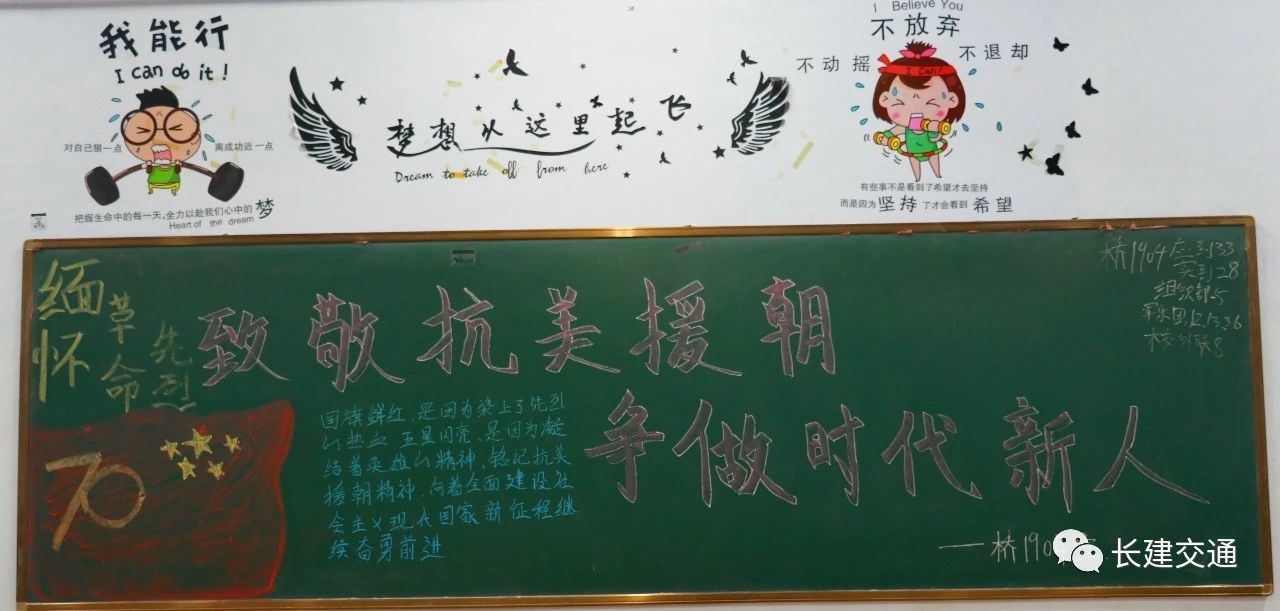 我能行
I can ob it!
对自己狠一点
离成功近一点
把握生命中的每一天,全力以赴我们心中的梦
Heart of the dream
梦想从这里起飞
Dream to take off from here
I Believe You
不放弃
不动摇
不退却
I can!
有些事不是看到了希望才去坚持
而是因为坚持了才会看到希望
缅怀
革命
先烈
致敬抗美援朝
争做时代新人
70
国旗鲜红,是因为染上了先烈
的热血,五星闪亮,是因为凝
结着英雄的精神,铭记抗美
援朝精神,向着全面建设社
会主义现代国家新征程继
续奋勇前进
桥1904 应到33
实到28
组织部.5
校外联8
——桥190
长建交通